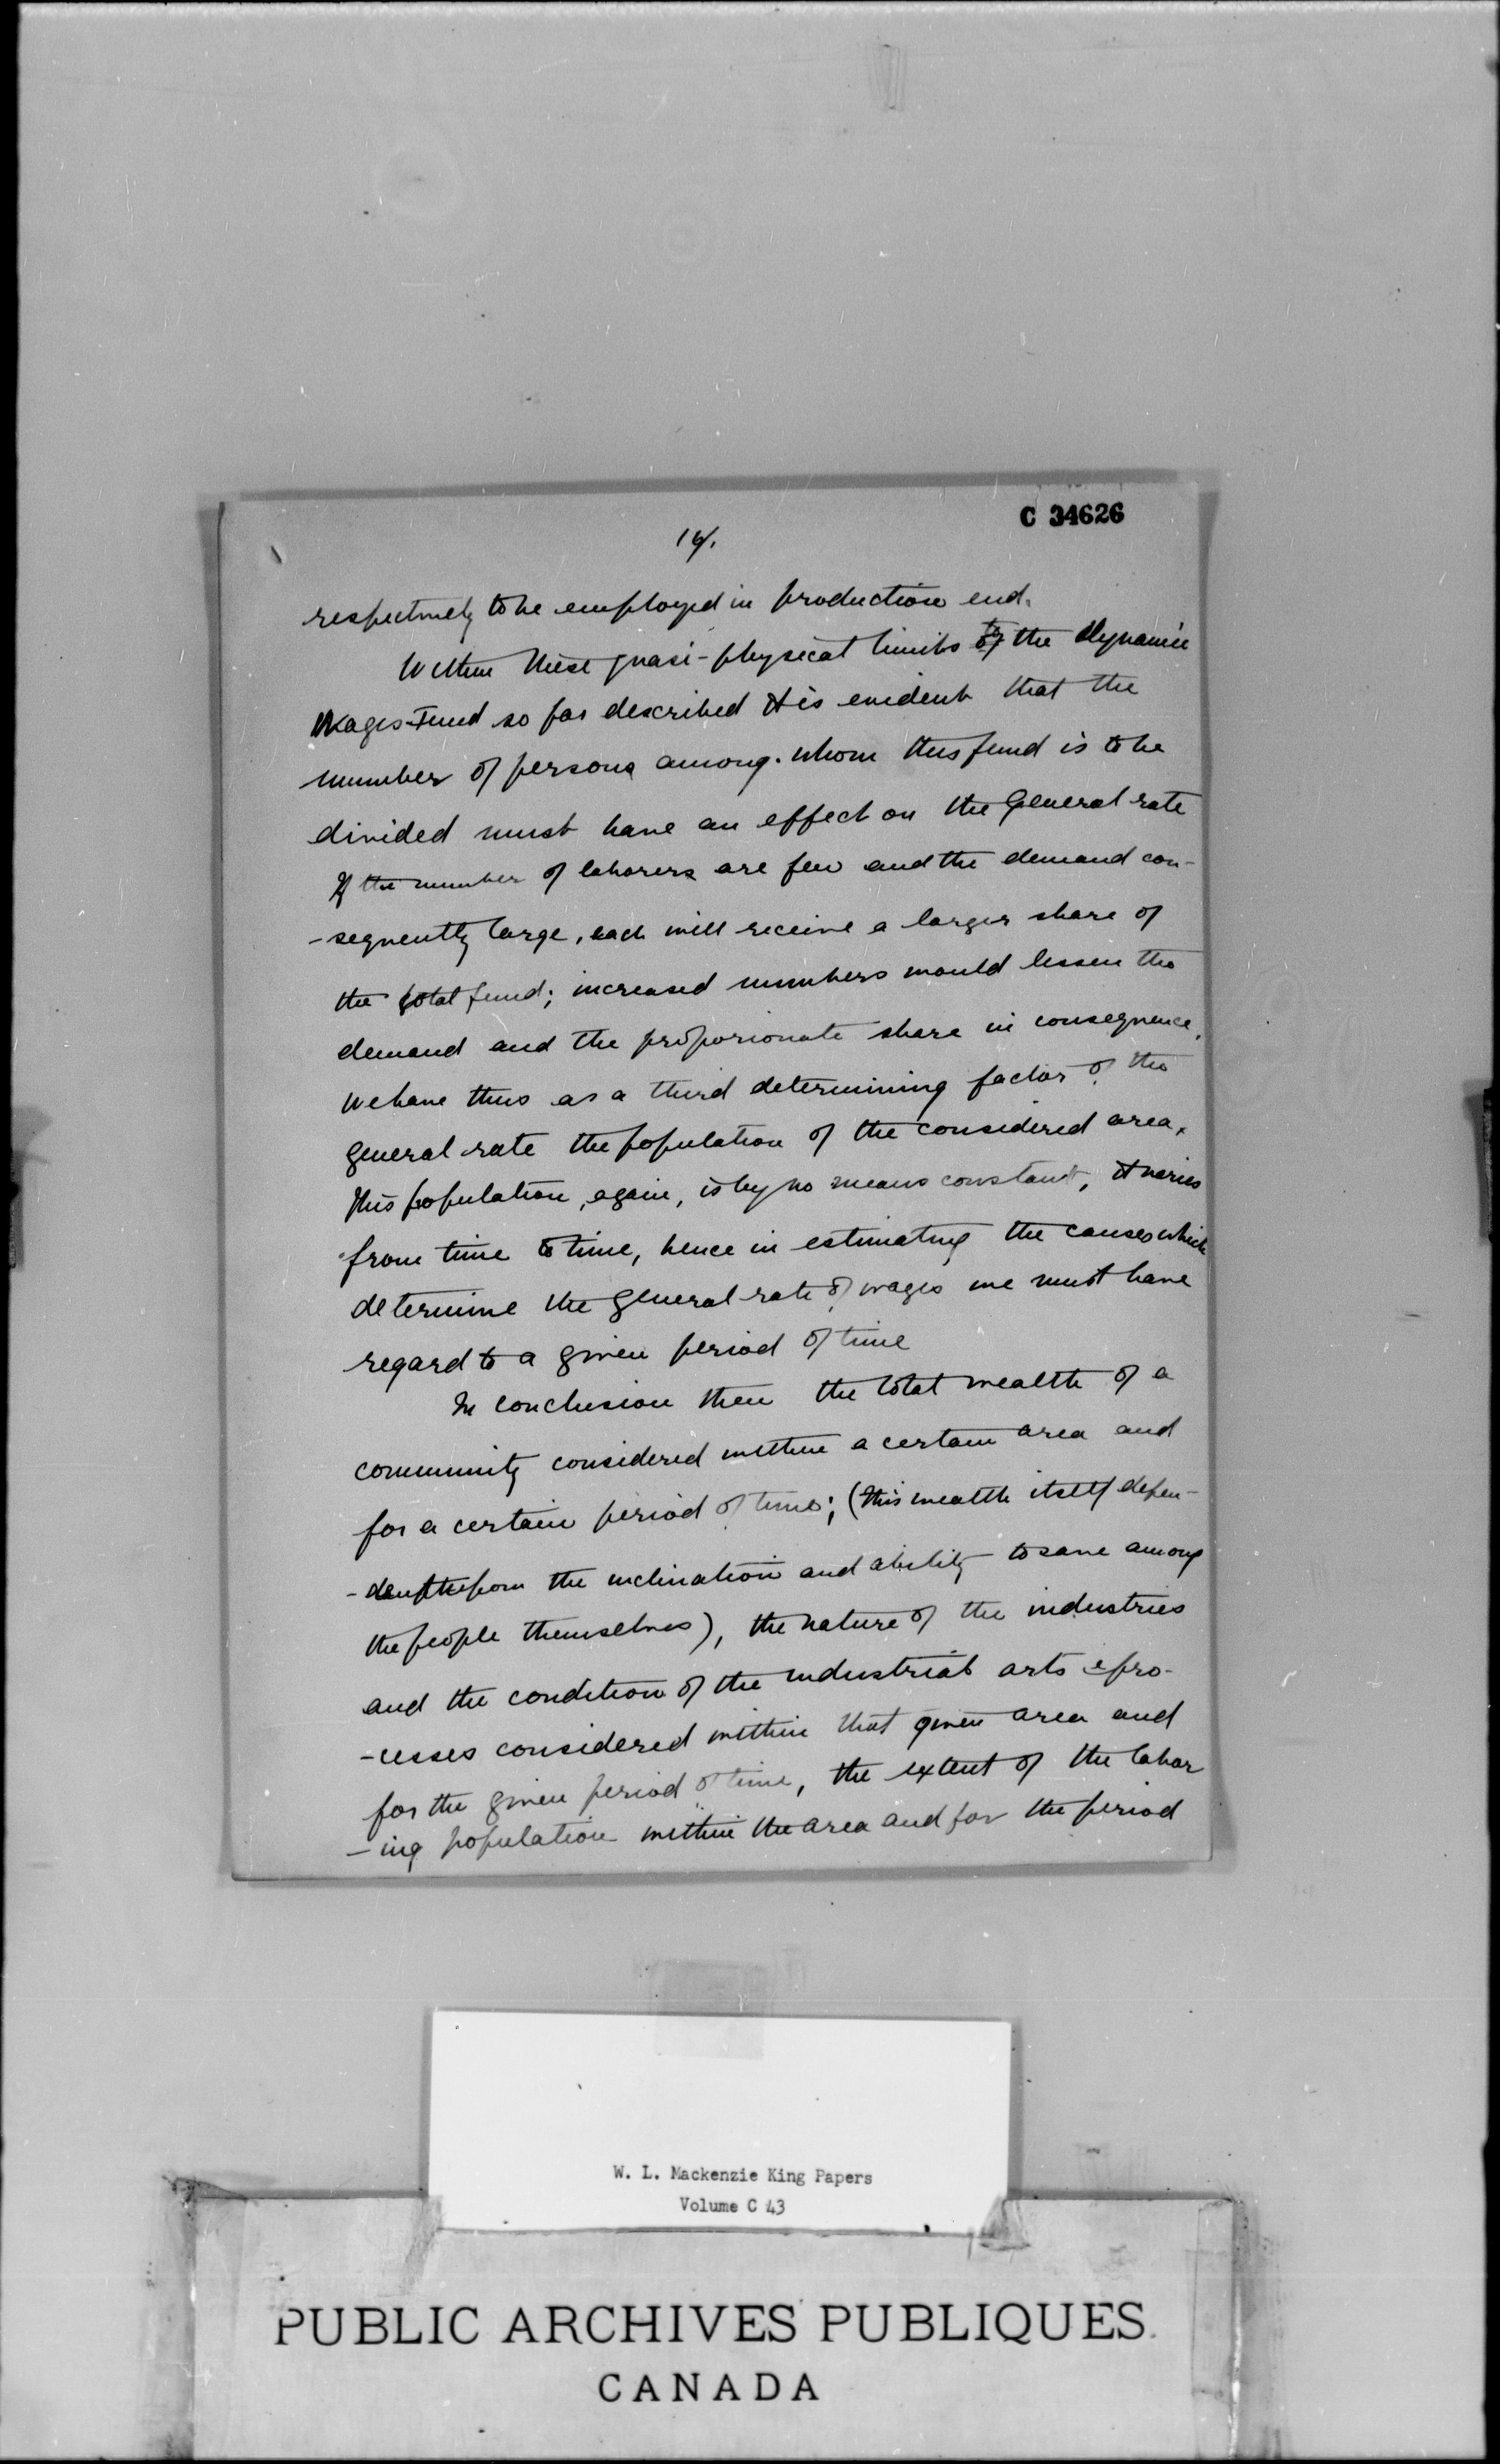 C 34626
respectively to be employed in production end.
Within these quasi-physical limits to the Dynamic
Wages-Fund so far described it is evident that the
number of persons among whom this fund is to be
divided must have an effect on the General rate
If the number of laborers are few and the demand con-
-sequently large, each will receive a larger share of
the total fund; increased numbers would lessen the
demand and the proporionate share in consequence.
We have thus as a third determining factor of the
general rate the population of the considered area.
This population, again, is by no means constant, it varies
from time to time, hence in estimating the causes which
determine the general rate of wages we must have
regard to a given period of time
In conclusion then the total wealth of a
community considered within a certain area and
for a certain period of time; (this wealth itself depen-
the inclination and ability to save among
the people themselves), the nature of the industries
and the condition of the industrial arts & pro-
-cesses considered within that given area and
for the given period of time, the extent of the labor
-ing population within the area and for the period
W. L. Mackenzie King Papers
Volume C 43
PUBLIC ARCHIVES PUBLIQUES
CANADA